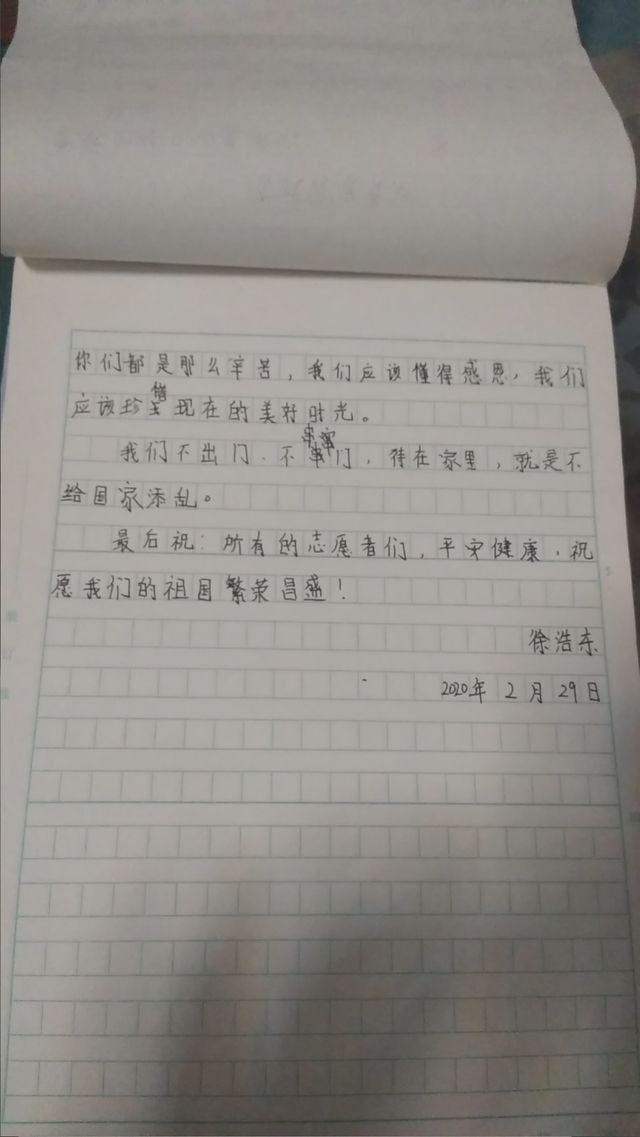 你们都是那么辛苦，我们应该懂得感恩，我们
应该珍惜现在的美好时光。
我们不出门、不串门，待在家里，就是不
给国家添乱。
最后祝：所有的志愿者们，平安健康，祝
愿我们的祖国繁荣昌盛！
徐浩东
2020年2月29日